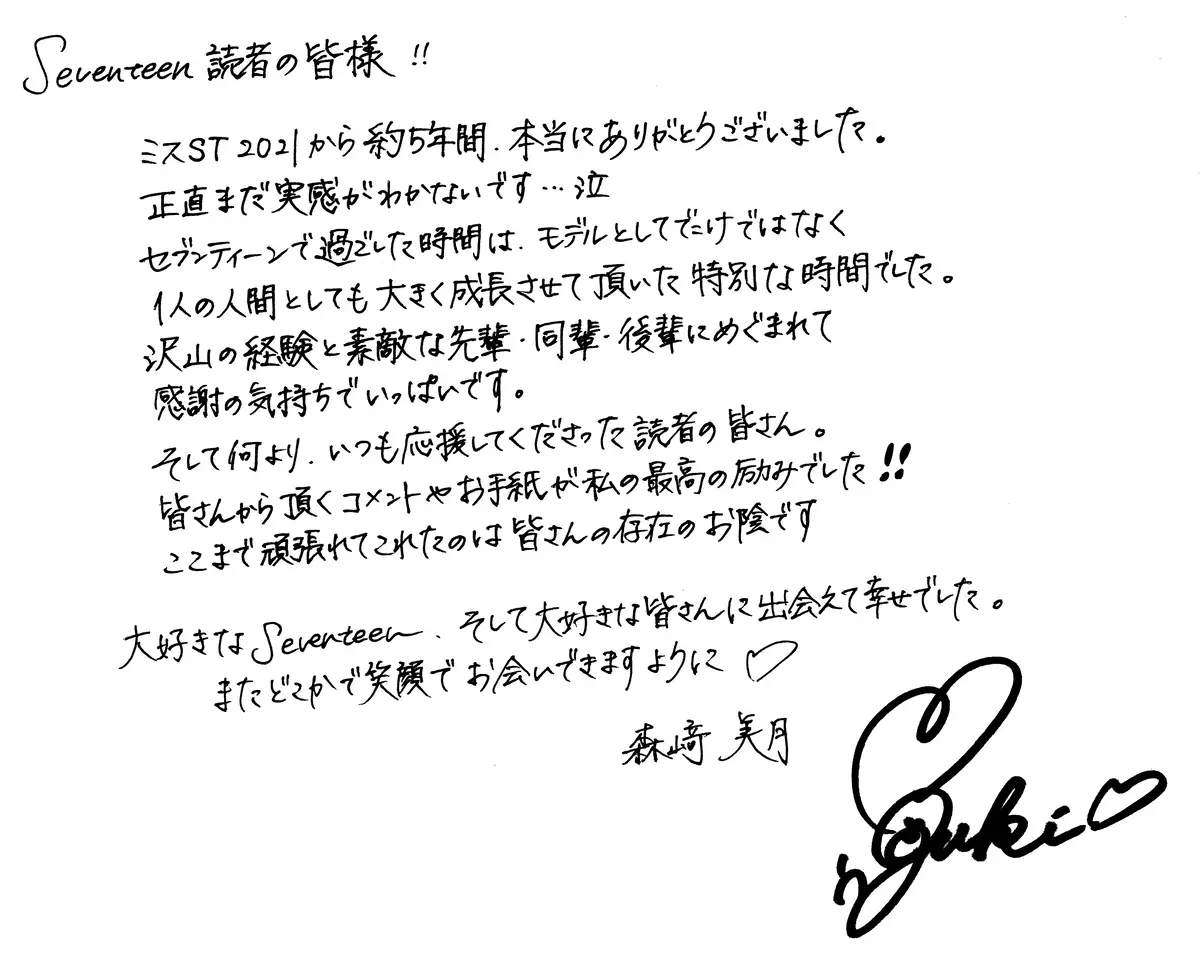 Seventeen 読者の皆様!!
ミスST2021から約5年間、本当にありがとうございました。
正直まだ実感がわかないです…泣
セブンティーンで過ごした時間は、モデルとしてだけではなく
1人の人間としても大きく成長させて頂いた特別な時間でした。
沢山の経験と素敵な先輩・同輩・後輩にめぐまれて
感謝の気持ちでいっぱいです。
そして何より、いつも応援してくださった読者の皆さん。
皆さんから頂くコメントやお手紙が私の最高の励みでした!!
ここまで頑張れてこれたのは皆さんの存在のお陰です
大好きなSeventeen、そして大好きな皆さんに出会えて幸せでした。
またどこかで笑顔でお会いできますように♡
森﨑 美月